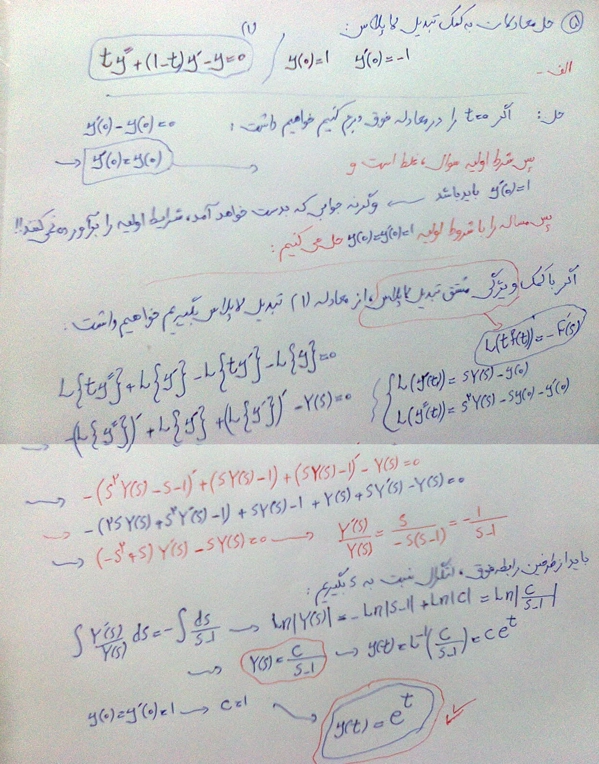 ۵) حل معادلات به کمک تبدیل لاپلاس:
الف- ty″ + (1-t)y′ - y = 0 (۱) / y(0)=1 y′(0)=-1
حل: اگر t=0 را در معادله فوق درج کنیم خواهیم داشت: y′(0) - y(0) = 0
→ y′(0) = y(0)
پس شرط اولیه سوال، غلط است و
y′(0)=1 باید باشد ← وگرنه جوابی که بدست خواهد آمد، شرایط اولیه را برآورده نمی‌کند!!
پس مساله را با شروط اولیه y(0)=y′(0)=1 حل می‌کنیم:
اگر با کمک ویژگی مشتق تبدیل لاپلاس، از معادله (۱) تبدیل لاپلاس بگیریم خواهیم داشت:
L(tf(t)) = -F′(s)
L{ty″} + L{y′} - L{ty′} - L{y} = 0
L(y′(t)) = sY(s) - y(0)
→ -(L{y″})′ + L{y′} + (L{y′})′ - Y(s) = 0
L(y″(t)) = s²Y(s) - sy(0) - y′(0)
→ -(s²Y(s) - s - 1)′ + (sY(s) - 1) + (sY(s) - 1)′ - Y(s) = 0
→ -(2sY(s) + s²Y′(s) - 1) + sY(s) - 1 + Y(s) + sY′(s) - Y(s) = 0
→ (-s² + s)Y′(s) - sY(s) = 0 → Y′(s)/Y(s) = s/-s(s-1) = -1/s-1
باید از طرفین رابطه فوق، انتگرال نسبت به s بگیریم:
∫ Y′(s)/Y(s) ds = -∫ ds/s-1 → Ln|Y(s)| = -Ln|s-1| + Ln|c| = Ln|c/s-1|
→ Y(s) = c/s-1 → y(t) = L⁻¹(c/s-1) = ce^t
y(0) = y′(0) = 1 → c=1 → y(t) = e^t ✓